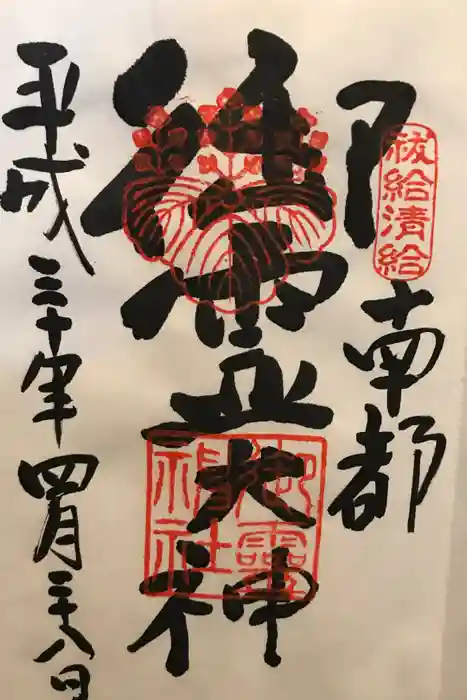 南都
祓給清給
御霊大神
御霊神社
平成三十年四月二十八日